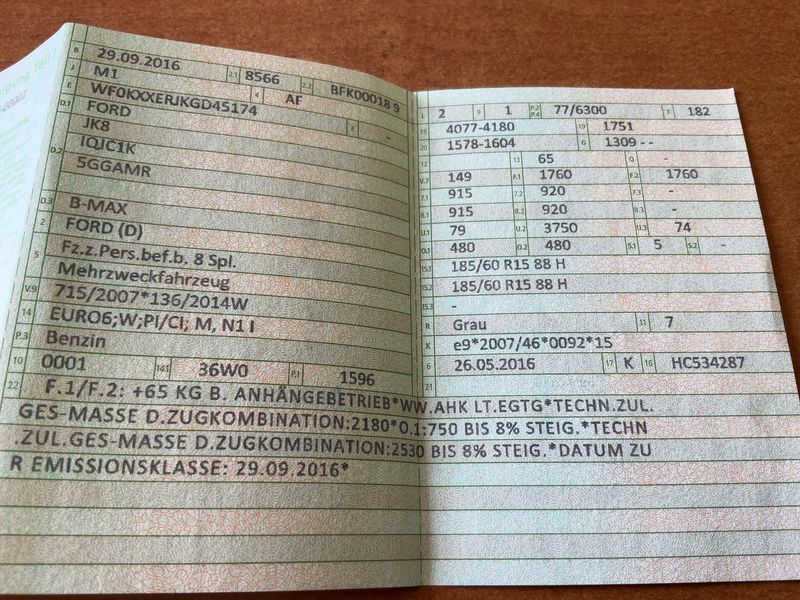 B 29.09.2016 2.1 8566 2.2 BFK00018 9
J M1 4 AF
E WF0KXXERJKGD45174 3 -
D.1 FORD
D.2 JK8
IQJC1K
5GGAMR
D.3 B-MAX
2 FORD (D)
5 Fz.z.Pers.bef.b. 8 Spl.
Mehrzweckfahrzeug
V.9 715/2007*136/2014W
14 EURO6;W;PI/CI; M, N1 I
P.3 Benzin
10 0001 14.1 36W0 P.1 1596
L 2 9 1 P.2 P.4 77/6300 T 182
18 4077-4180 19 1751
20 1578-1604 G 1309 --
12 13 65 Q -
V.7 149 F.1 1760 F.2 1760
7.1 915 7.2 920 7.3 -
8.1 915 8.2 920 8.3 -
U.1 79 U.2 3750 U.3 74
O.1 480 O.2 480 S.1 5 S.2 -
15.1 185/60 R15 88 H
15.2 185/60 R15 88 H
15.3 -
R Grau 11 7
K e9*2007/46*0092*15
6 26.05.2016 17 K 16 HC534287
21
22 F.1/F.2: +65 KG B. ANHÄNGEBETRIEB*WW.AHK LT.EGTG*TECHN.ZUL.
GES-MASSE D.ZUGKOMBINATION:2180*O.1:750 BIS 8% STEIG.*TECHN
.ZUL.GES-MASSE D.ZUGKOMBINATION:2530 BIS 8% STEIG.*DATUM ZU
R EMISSIONSKLASSE: 29.09.2016*